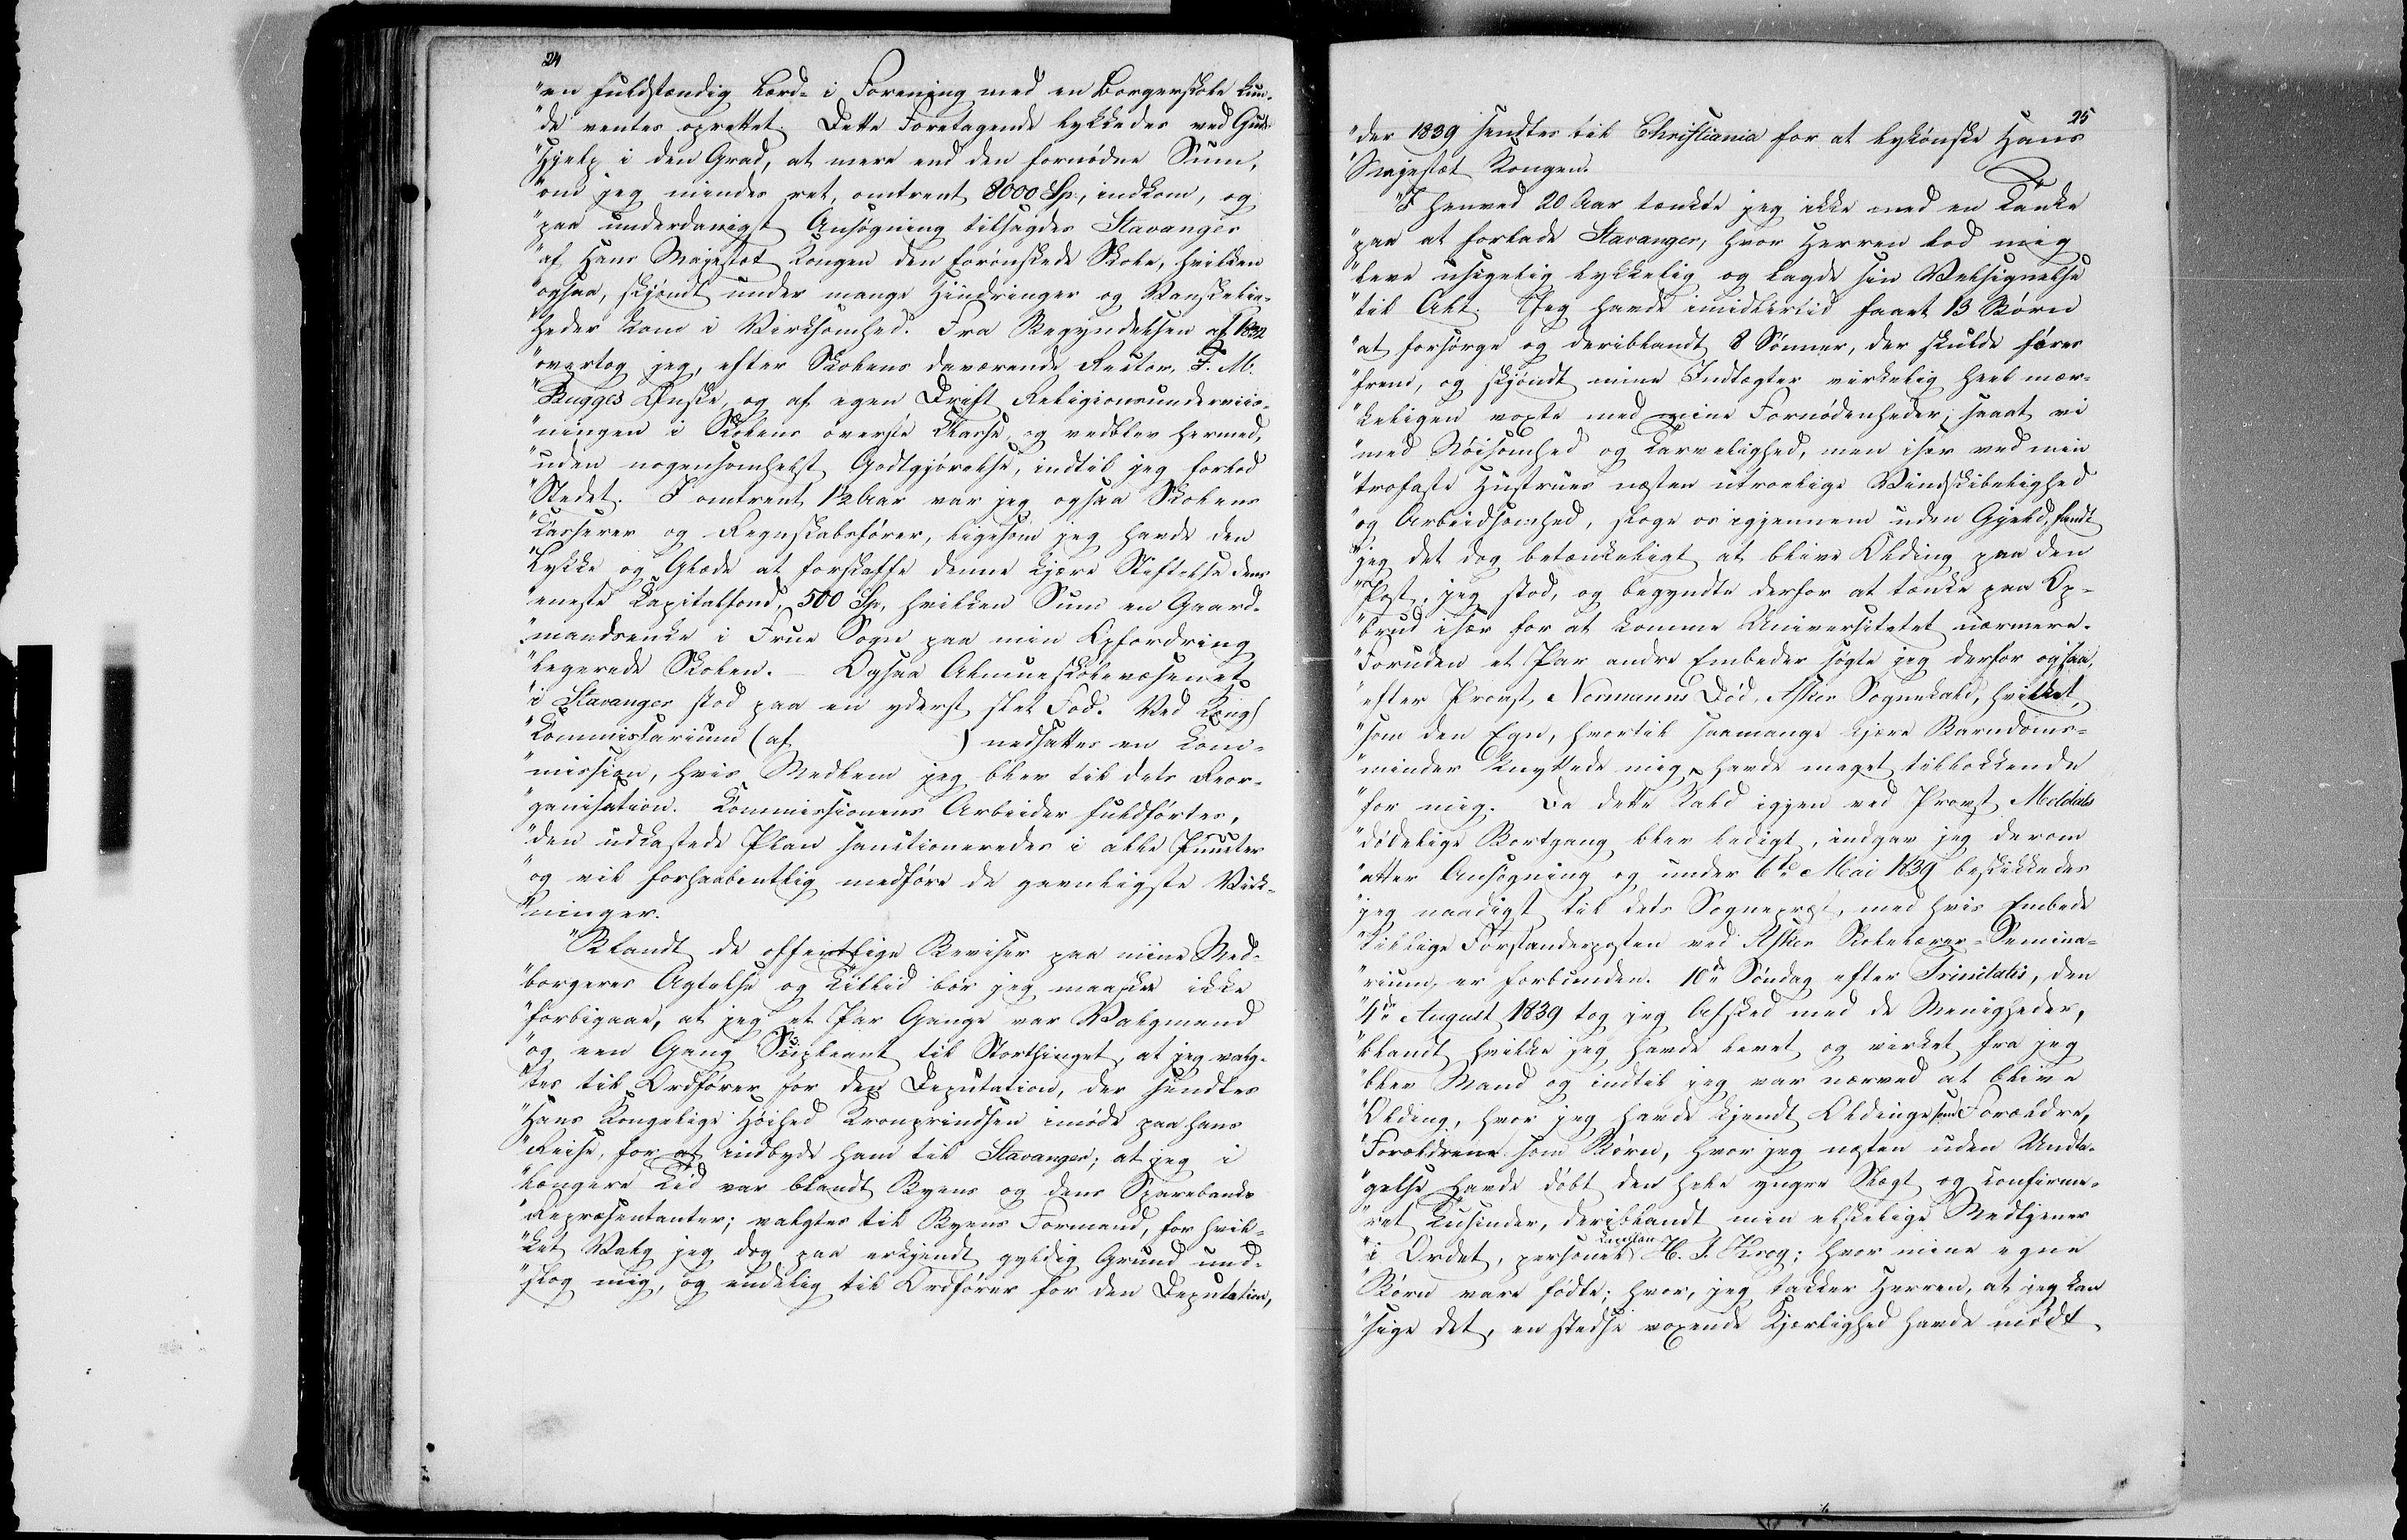 24
"en fuldstændig Lærd- i Forening med en Borgerskole kun-
"de ventes oprettet. Dette Foretagende lykkedes ved Guds
"Hjelp i den Grad, at mere end den fornødne Sum,
"om jeg mindes ret, omtrent 8000 Sp, indkom, og
"paa underdanigst Ansøgning tilsagdes Stavanger
"af Hans Majestæt Kongen den forønskede Skole, hvilken
"ogsaa, skjøndt under mange Hindringer og Vanskelig-
"heder kom i Virksomhed. Fra Begyndelsen af 1832
"overtog jeg, efter Skolens daværende Rector, F. M.
"Bugges Ønske, og af egen Drift Religionsunderviis-
"ningen i Skolens øverste Klasse, og vedblev hermed,
"uden nogensomhelst Godtgjørelse, indtil jeg forlod
"Stedet. I omtrent 12 Aar var jeg ogsaa Skolens
"Kasserer og Regnskabsfører, ligesom jeg havde den
"Lykke og Glæde at forskaffe denne kjære Stiftelse dens
"eneste Kapitalfond, 500 Sp, hvilken Sum en Gaard-
"mandsenke i Frue Sogn paa min Opfordring
"legerede Skolen. – Ogsaa Almueskolevæsenet
"i Stavanger stod paa en yderst slet Fod. Ved Kongl
"Kommissarium (af ) nedsattes en Kom-
"mission, hvis Medlem jeg blev til dets Reor-
"ganisation. Kommissionens Arbeider fuldførtes,
"den udkastede Plan sanctioneredes i alle Puncter
"og vil forhaabentlig medføre de gavnligste Virk-
"ninger.
"Blandt de offentlige Beviser paa mine Med-
"borgeres Agtelse og Tillid bør jeg maaskee ikke
"forbigaae, at jeg et Par Gange var Valgmand
"og een Gang Supleant til Storthinget, at jeg valg-
"tes til Ordfører for den Deputation, der sendtes
"Hans Kongelige Høihed Kronprindsen imøde paa hans
"Reise, for at indbyde ham til Stavanger; at jeg i
"længere Tid var blandt Byens og dens Sparebanks
"Repræsentanter; valgtes til Byens Formand, for hvil-
"ket Valg jeg dog paa erkjendt gyldig Grund und-
"slog mig, og endelig til Ordfører for den Deputation,
25
"der 1839 sendtes til Christiania for at lykønske Hans
"Majestæt Kongen.
"I henved 20 Aar tænkte jeg ikke med en Tanke
"paa at forlade Stavanger, hvor Herren lod mig
"leve usigelig lykkelig og lagde sin Velsignelse
"til Alt. Jeg havde imidlertid faaet 13 Børn
"at forsørge og deriblandt 8 Sønner, der skulde føres
"frem, og skjøndt mine Indtægter virkelig heel mær-
"keligen voxte med mine Fornødenheder, saaat vi
"med Nøisomhed og Tarvelighed, men især ved min
"trofaste Hustrues næsten utroelige Vindskibelighed
"og Arbeidsomhed, sloge os igjennem uden Gjæld, fandt
"jeg det dog betænkeligt at blive Olding paa den
"Post, jeg stod, og begyndte derfor at tænke paa Op-
"brud især for at komme Universitetet nærmere.
"Foruden et Par andre Embeder søgte jeg derfor ogsaa,
"efter Provst Normanns Død, Asker Sognekald, hvilket,
"som den Egn, hvortil saamange kjære Barndoms-
"minder knyttede mig, havde meget tillokkende
"for mig. Da dette Kald igjen ved Provst Meldals
"dødelige Bortgang blev ledigt, indgav jeg derom
"atter Ansøgning og under 6te Mai 1839 beskikkedes
"jeg naadigst til dets Sognepræst, med hvis Embede
"tillige Forstanderposten ved Asker Skolelærer-Semina-
"rium er forbunden. 10de Søndag efter Trinitatis, den
"4de August 1839 tog jeg Afsked med de Menigheder,
"blandt hvilke jeg havde levet og virket fra jeg
"blev Mand og indtil jeg var nærved at blive
"Olding, hvor jeg havde kjendt Oldinge som Forældre,
"Forældrene som Børn, hvor jeg næsten uden Undta-
"gelse havde døbt den hele yngre Slægt og konfirme-
"ret Tusinder, deriblandt min elskelige Medtjener
"i Ordet, personel Kapellan H. J. Krog; hvor mine egne
"Børn vare fødte; hvor, jeg takker Herren, at jeg kan
"sige det, en stedse voxende Kjærlighed havde mødt